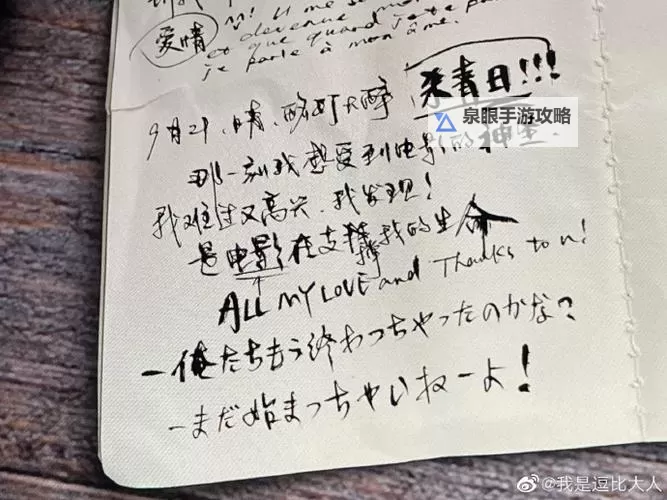 爱情
devenue mon
et que quand je te parle
je parle à mon âme.
9月21,晴,酩酊大醉 杀青日!!!
泉眼手游攻略
那一刻我感受到电影的神圣
我难过又高兴,我发现!
是电影在支撑我的生命
ALL MY LOVE and Thanks to u!
一俺たちもう終わっちゃったのかな?
一まだ始まっちゃいねーよ!
@我是逗比大人